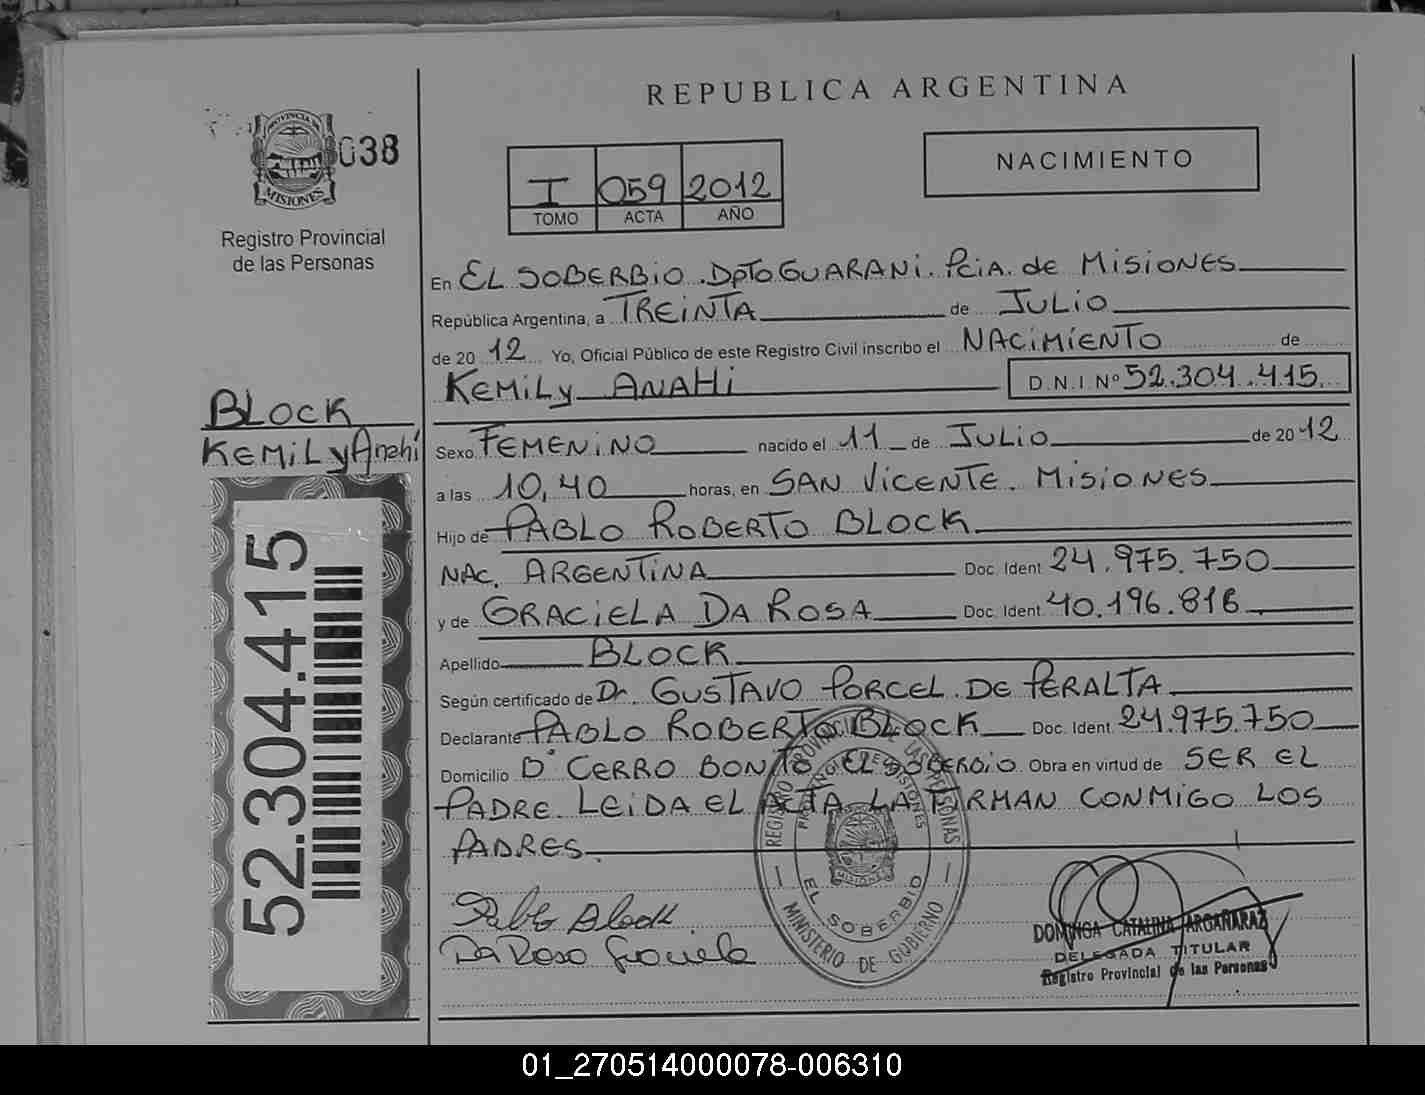 REPUBLICA ARGENTINA
PROVINCIA DE
MISIONES
038
Registro Provincial
de las Personas
I 059 2012
TOMO ACTA AÑO
NACIMIENTO
En EL SOBERBIO. DPTO GUARANI. Pcia. de MISIONES
República Argentina, a TREINTA de JULIO
de 20 12 Yo, Oficial Público de este Registro Civil inscribo el NACIMIENTO de
KEMILY ANAHI D.N.I. Nº 52.304.415
BLOCK
KEMILY Anahi
Sexo FEMENINO nacido el 11 de JULIO de 20 12
a las 10,40 horas, en SAN VICENTE. MISIONES
Hijo de PABLO ROBERTO BLOCK
NAC. ARGENTINA Doc. Ident. 24.975.750
y de GRACIELA DA ROSA Doc. Ident. 40.196.816
Apellido BLOCK
Según certificado de Dr. GUSTAVO PORCEL DE PERALTA
Declarante PABLO ROBERTO BLOCK Doc. Ident. 24.975.750
Domicilio Bº CERRO BONITO EL SOBERBIO Obra en virtud de SER EL
PADRE. LEIDA EL ACTA LA FIRMAN CONMIGO LOS
PADRES.
52.304.415
Pablo Block
Da Rosa Graciela
REGISTRO PROVINCIAL DE LAS PERSONAS
PROVINCIA DE MISIONES
MISIONES
EL SOBERBIO
MINISTERIO DE GOBIERNO
DOMINGA CATALINA ARGAÑARAZ
DELEGADA TITULAR
Registro Provincial de las Personas
01_270514000078-006310